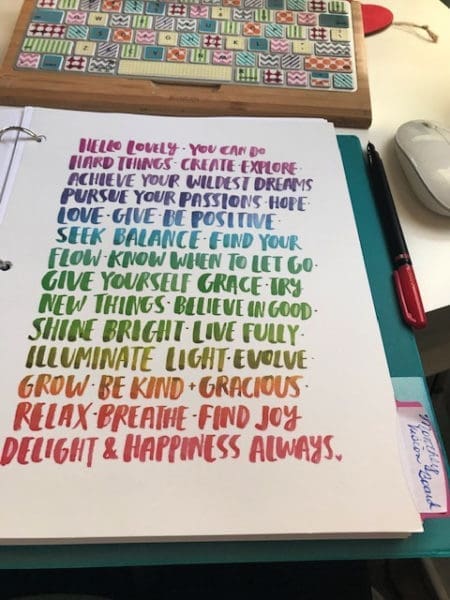 HELLO LOVELY · YOU CAN DO
HARD THINGS · CREATE · EXPLORE ·
ACHIEVE YOUR WILDEST DREAMS
PURSUE YOUR PASSIONS · HOPE ·
LOVE · GIVE · BE POSITIVE ·
SEEK BALANCE · FIND YOUR
FLOW · KNOW WHEN TO LET GO ·
GIVE YOURSELF GRACE · TRY
NEW THINGS · BELIEVE IN GOOD ·
SHINE BRIGHT · LIVE FULLY ·
ILLUMINATE LIGHT · EVOLVE ·
GROW · BE KIND + GRACIOUS ·
RELAX · BREATHE · FIND JOY
DELIGHT & HAPPINESS ALWAYS.♥
Monthly
Vision Board